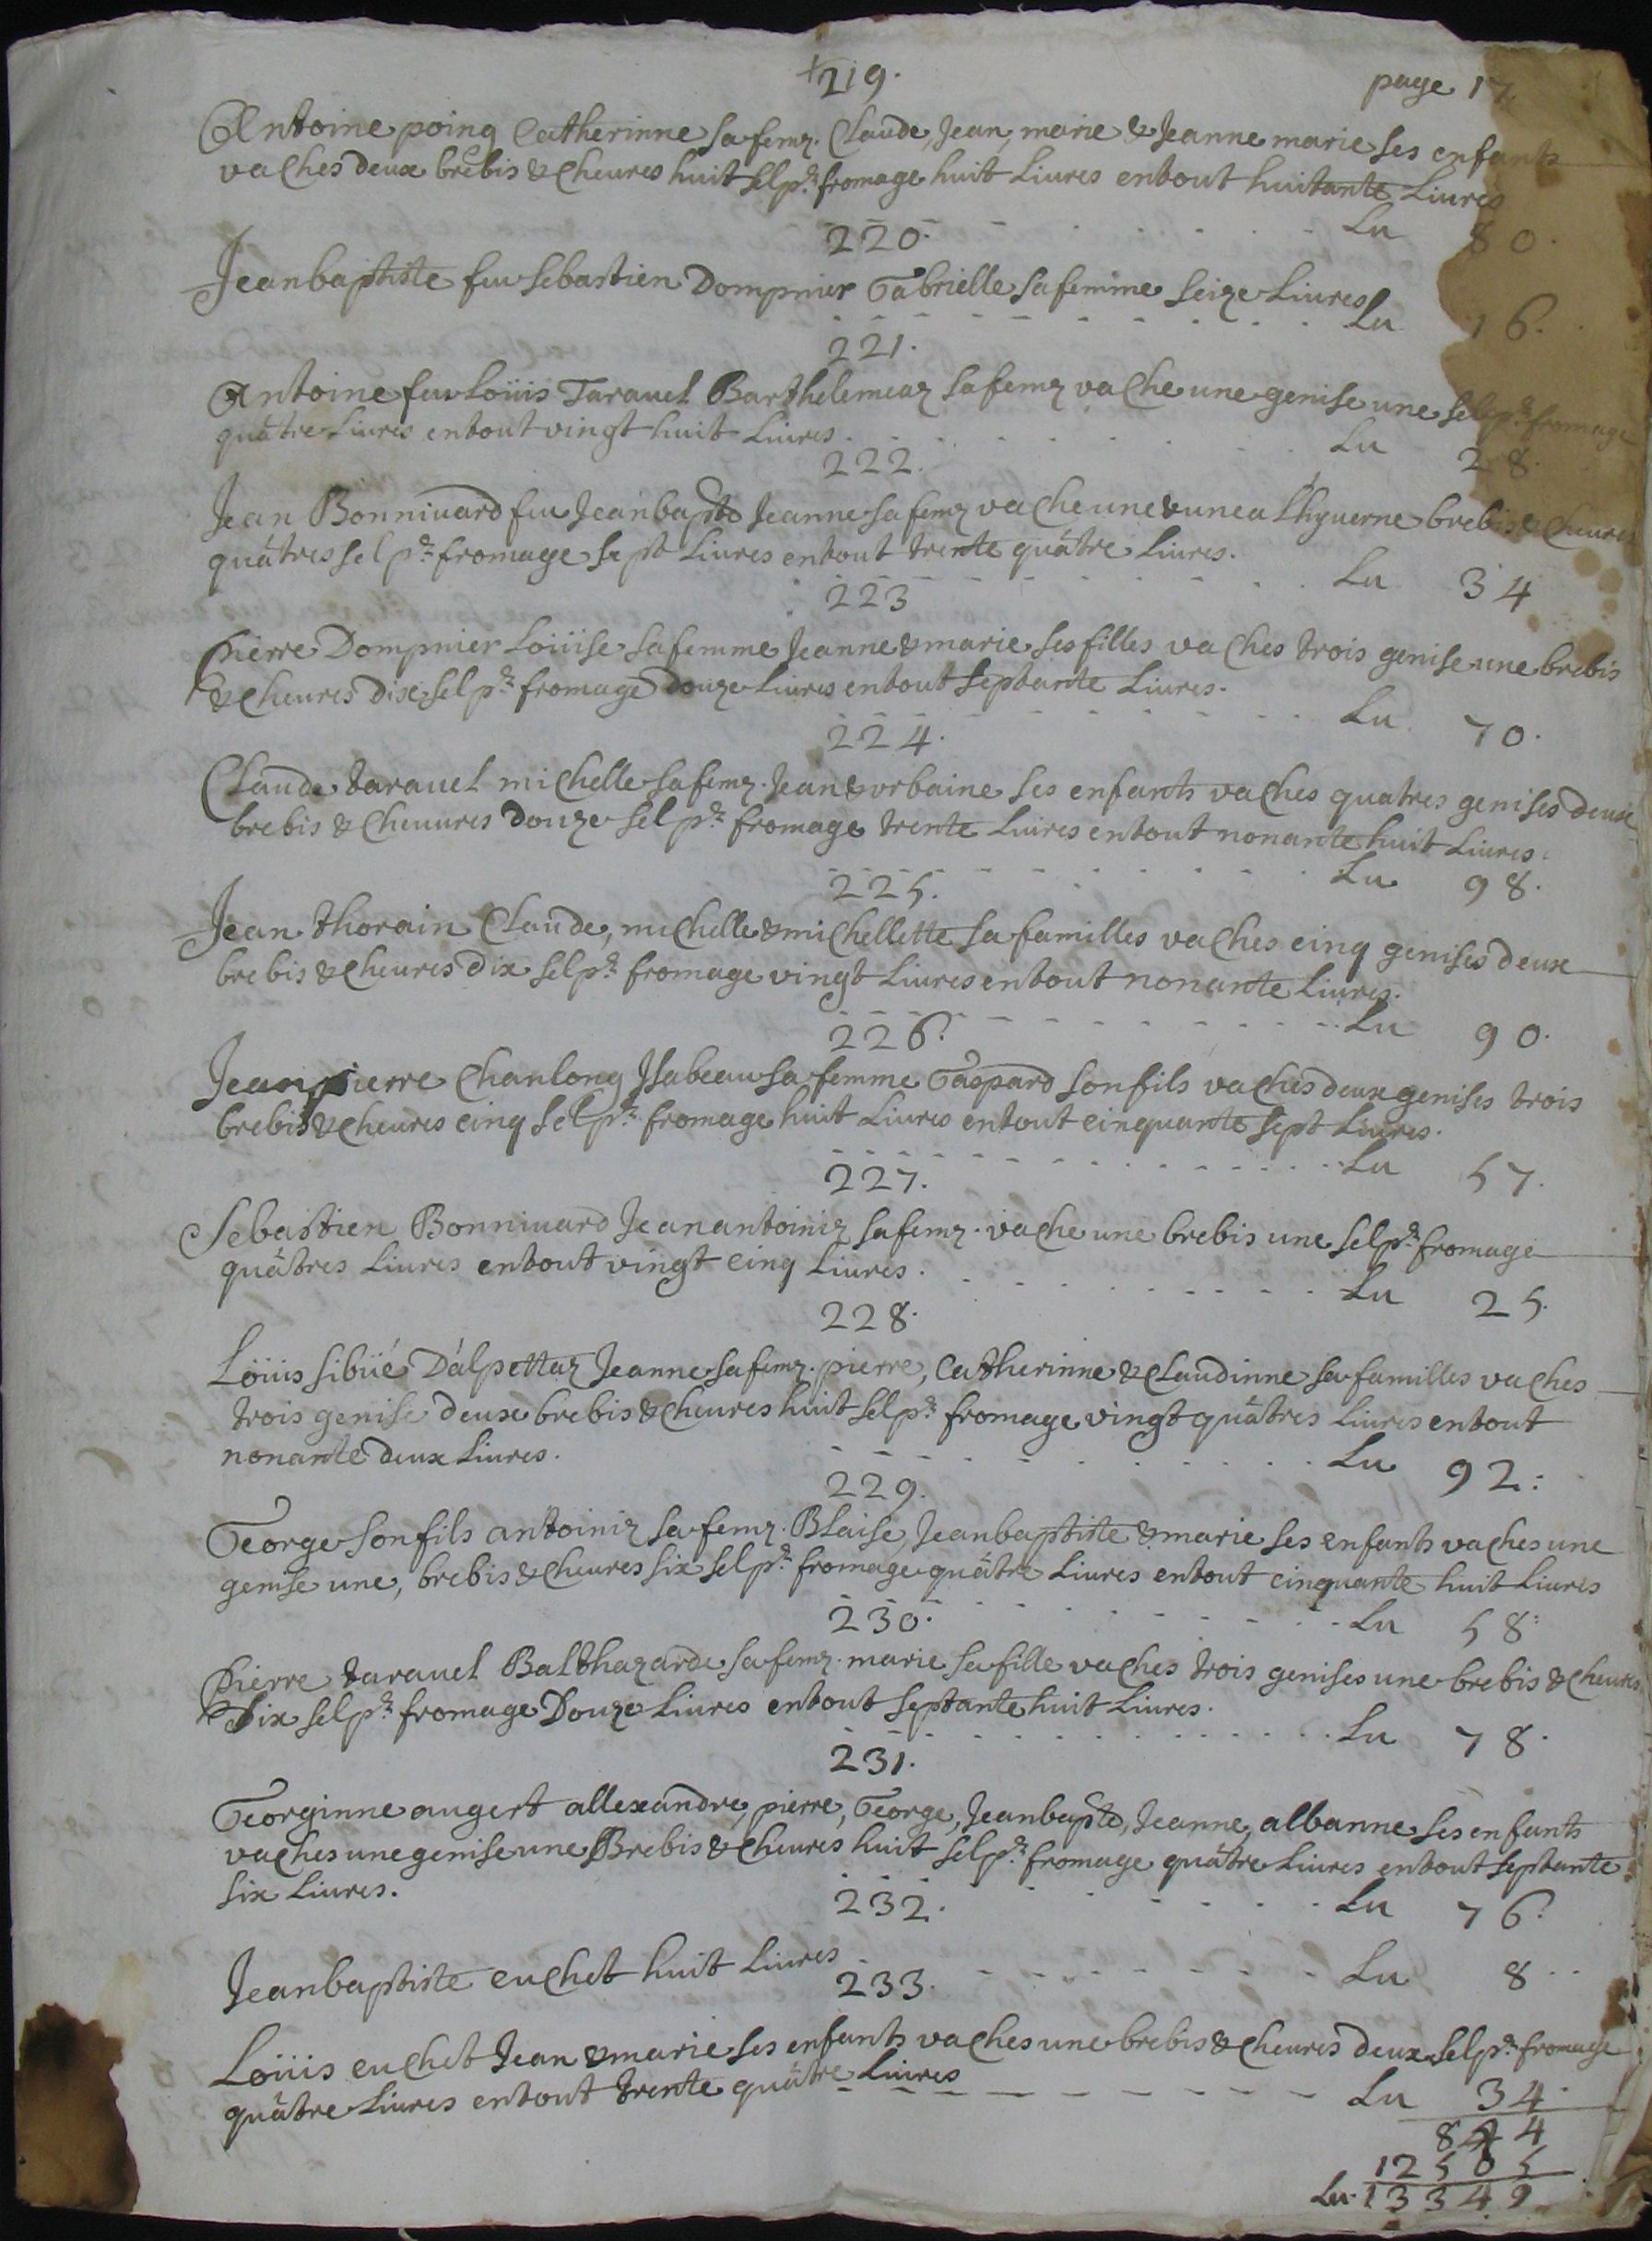 219.
page 17
Antoine poing Catherinne sa femz. Claude, Jean, marie & Jeanne marie ses enfants
vaches deux brebis & cheures huit sel pr fromage huit Liures entout huitante Liures
Lu 80.
220.
Jeanbaptiste feu sebastien Dompnier Gabrielle sa femme seize Liures
Lu 16.
221.
Antoine feu Loüis Tarauel Barthelemeaz sa femz vache une genise une sel pr fromage
quätre Liures entout vingt huit Liures.
Lu 28.
222.
Jean Bonniuard feu Jeanbapte Jeanne sa femz vache une & une a Lhyuerne brebis & cheures
quätres sel pr fromage sept Liures entout trente quätre Liures.
Lu 34
223
Pierre Dompnier Loüise sa femme Jeanne & marie ses filles vaches trois genise une brebis
& cheures dix sel pr fromage douze Liures entout septante Liures.
Lu 70.
224.
Claude tarauel michelle sa femz. Jean & vrbaine ses enfants vaches quatres genises deux
brebis & cheuures douze sel pr fromage trente Liures entout nonante huit Liures.
Lu 98.
225.
Jean thorain Claude, michelle & michellette sa familles vaches cinq genises deux
brebis & cheures dix sel pr fromage vingt Liures entout nonante Liures.
Lu 90.
226.
Jeanpierre Chanlong Isabeau sa femme Gaspard son fils vaches deux genises trois
brebis & cheures cinq sel pr fromage huit Liures entout cinquante sept Liures.
Lu 57.
227.
Sebastien Bonniuard Jeanantoiniz sa femz. vache une brebis une sel pr fromage
quätres Liures entout vingt cinq Liures.
Lu 25.
228.
Loüis sibüé Dálpettaz Jeanne sa femz. pierre, Catherinne & Claudinne sa familles vaches
trois genise deux brebis & cheures huit sel pr fromage vingt quätres Liures entout
nonante deux Liures.
Lu 92:
229.
George son fils antoiniz sa femz. Blaise, Jeanbaptiste & marie ses enfants vaches une
genise une, brebis & cheures six sel pr fromage quätre Liures entout cinquante huit Liures
Lu 58:
230.
Pierre tarauel Balthazarde sa femz. marie sa fille vaches trois genises une brebis & cheures
Dix sel pr fromage Douze Liures entout septante huit Liures.
Lu 78.
231.
Georginne augert allexandre, pierre, George, Jeanbapte, Jeanne, albanne ses enfants
vaches une genise une Brebis & cheures huit sel pr fromage quätre Liures entout septante
six Liures.
Lu 76.
232.
Jeanbaptiste euchet huit Liures
Lu 8
233.
Loüis euchet Jean & marie ses enfants vaches une brebis & cheures deux sel pr fromage
quätre Liures entout trente quätre Liures
Lu 34.
844
12505
Lu. 13349